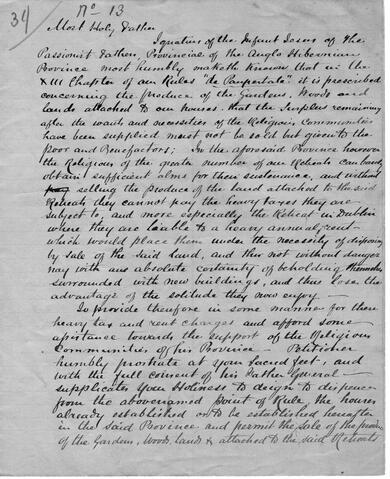 34
No 13
Most Holy Father
Ignatius of the Infant Jesus of the
Passionist Fathers, Provincial of the Anglo Hibernian
Province most humbly maketh known that in the
XIII Chapter of our Rules "de Paupertate" it is prescribed
concerning the produce of the Gardens, Woods and
lands attached to our houses, that the Surplus remaining
after the wants and necessities of the Religious Communities
have been supplied must not be sold but given to the
poor and Benefactors; In the aforesaid Province however
the Religious of the greater number of our Retreats can barely
obtain sufficient alms for their sustenance, and without
selling the produce of the land attached to the said
Retreats they cannot pay the heavy taxes they are
subject to, and more especially the Retreat in Dublin
where they are liable to a heavy annual rent
which would place them under the necessity of disposing
by sale of the said land, and this not without danger
nay with an absolute certainty of beholding themselves
surrounded with new buildings, and thus lose the
advantage of the solitude they now enjoy —
To provide therefore in some manner for these
heavy tax and rent charges and afford some
assistance towards the support of the Religious
Communities of his Province — Petitioner
humbly prostrate at your sacred feet, and
with the full consent of his Father General —
supplicates your Holiness to deign to dispense
from the abovenamed Point of Rule, the houses
already established or to be established hereafter
in the said Province and permit the Sale of the produce
of the Gardens, Woods, lands & attached to the said Retreats